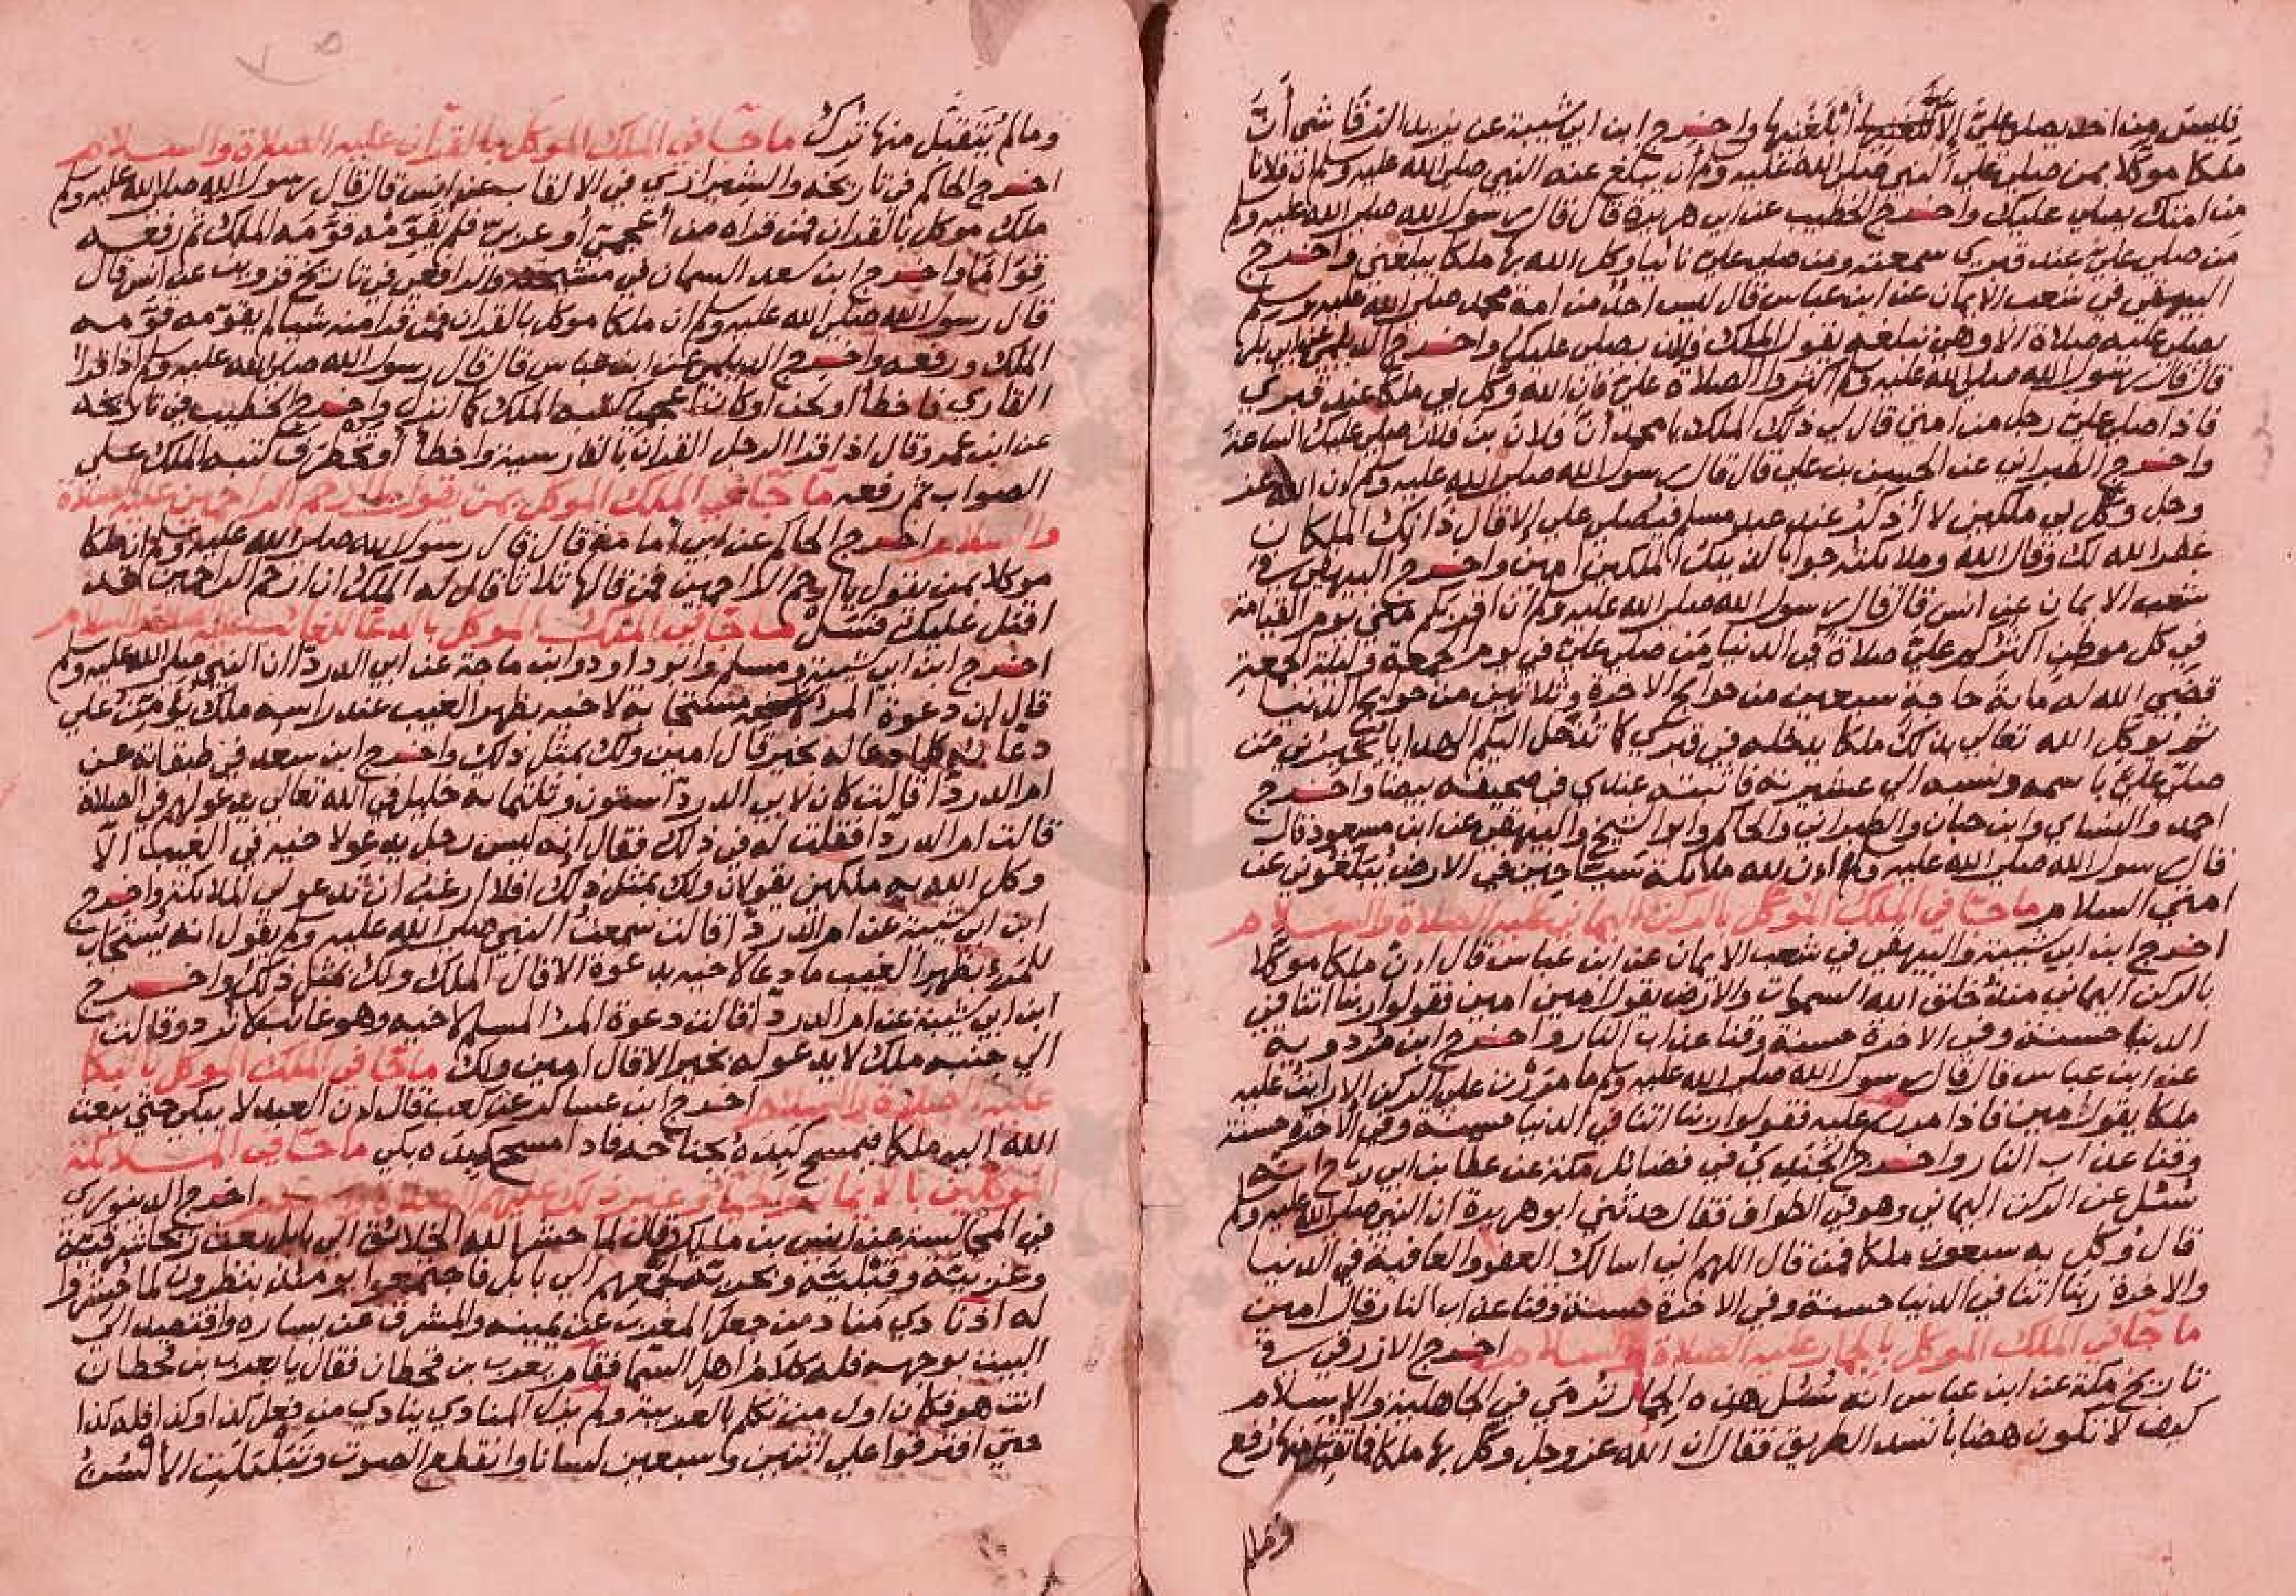 فليس من احد يصلي علي إلا أبلغنيها واخرج ابن ابي شيبة عن يزيد الرقاشي أن
ملكا موكلا بمن صلي علي النبي صلي الله عليه وسلم أن يبلغ عنه النبي صلي الله عليه وسلم ان فلانا
من امتك يصلي عليك واخرج الخطيب عن ابي هريرة قال قال رسول الله صلي الله عليه وسلم
من صلي علي عند قبري سمعته ومن صلي علي نائيا وكل الله بها ملكا يبلغني واخرج
البيهقي في شعب الايمان عن ابن عباس قال ليس احد من امة محمد صلي الله عليه وسلم
يصلي عليه صلاة الا وهي تبلغه يقول الملك فلان يصلي عليك واخرج الديلمي عن ابي بكر
قال قال رسول الله صلي الله عليه وسلم اكثروا الصلاة علي فان الله وكل بي ملكا عند قبري
فاذا صلي علي رجل من امتي قال لي ذلك الملك يا محمد أن فلان بن فلان صلي عليك الساعة
واخرج الطبراني عن الحسين بن علي قال قال رسول الله صلي الله عليه وسلم إن الله عز
وجل وكل بي ملكين لا أذكر عند عبد مسلم فيصلي علي إلا قال ذانك الملكان
غفر الله لك وقال الله وملائكته جوابا لذينك الملكين امين واخرج البيهقي في
شعب الايمان عن انس قال قال رسول الله صلي الله عليه وسلم أن اقربكم مني يوم القيامة
في كل موطن اكثركم علي صلاة في الدنيا من صلي علي في يوم الجمعة وليلة الجمعة
قضي الله له ماية حاجة سبعين من حوايج الاخرة وثلاثين من حوايج الدنيا
ثم يوكل الله تعالي بذلك ملكا يدخله في قبري كما تدخل اليكم الهدايا يخبرني من
صلي علي باسمه ونسبه الي عشيرته فاثبته عندي في صحيفة بيضا واخرج
احمد والنساي وابن حبان والطبراني والحاكم وابو الشيخ والبيهقي عن ابن مسعود قال
قال رسول الله صلي الله عليه وسلم إن لله ملائكة سياحين في الارض يبلغوني عن
امتي السلام ما جآ في الملك الموكل بالركن اليماني عليه الصلاة والسلام
اخرج ابن ابي شيبة والبيهقي في شعب الايمان عن ابن عباس قال إن ملكا موكلا
بالركن اليماني منذ خلق الله السموات والارض يقول امين امين فقولوا ربنا اتنا في
الدنيا حسنة وفي الاخرة حسنة وقنا عذاب النار واخرج ابن مردويه
عن ابن عباس قال قال رسول الله صلي الله عليه وسلم ما مررت علي الركن إلا رايت عليه
ملكا يقول امين فاذا مررتم عليه فقولوا ربنا اتنا في الدنيا حسنة وفي الاخرة حسنة
وقنا عذاب النار واخرج الجندي في فضائل مكة عن عطا بن ابي رباح انه
سئل عن الركن اليماني وهو في الطواف فقال حدثني ابو هريرة ان النبي صلي الله عليه وسلم
قال وكل به سبعون ملكا فمن قال اللهم اني اسالك العفو والعافية في الدنيا
والاخرة ربنا اتنا في الدنيا حسنة وفي الاخرة حسنة وقنا عذاب النار قال امين
ما جآ في الملك الموكل بالجمار عليه الصلاة والسلام اخرج الازرقي في
تاريخ مكة عن ابن عباس انه سئل هذه الجمار ترمي في الجاهلية والاسلام
كيف لا تكون هضابا تسد الطريق فقال ان الله عز وجل وكل بها ملكا فما تقبل منها رفع
وما لم
وما لم يتقبل منها ترك ما جآ في الملك الموكل بالقرآن عليه الصلاة والسلام
اخرج الحاكم في تاريخه والشيرازي في الالقاب عن انس قال قال رسول الله صلي الله عليه وسلم
ملك موكل بالقران فمن قراه من أعجمي أو عربي فلم يقومه قومه الملك ثم رفعه
قواما واخرج ابن سعد السمان في مشيخته والرافعي في تاريخ قزوين عن انس قال
قال رسول الله صلي الله عليه وسلم ان ملكا موكل بالقران فمن قرا منه شيا لم يقومه قومه
الملك ورفعه واخرج الديلمي عن ابن عباس قال قال رسول الله صلي الله عليه وسلم اذا قرا
القاري فاخطأ أو لحن أو كان أعجميا كتبه الملك كما أنزل واخرج الخطيب في تاريخه
عن ابن عمر وقال اذا قرا الرجل القران بالفارسية واخطأ أو كتبه الملك علي
الصواب ثم رفعه ما جآ في الملك الموكل بمن يقول يا ارحم الراحمين عليه الصلاة
والسلام اخرج الحاكم عن ابي أمامة قال قال رسول الله صلي الله عليه وسلم إن ملكا
موكلا بمن يقول يا ارحم الراحمين فمن قالها ثلاثا قال له الملك ان ارحم الراحمين قد
اقبل عليك فسل ما جآ في الملك الموكل بالدعا للغائب عليه الصلاة والسلام
اخرج ابن ابي شيبة ومسلم وابو داود وابن ماجة عن ابي الدردآ ان النبي صلي الله عليه وسلم
قال إن دعوة المرء مستجابة لاخيه بظهر الغيب عند راسه ملك يؤمن علي
دعائه كلما دعا له بخير قال امين ولك بمثل ذلك واخرج ابن سعد في طبقاته عن
ام الدردآ قالت كان لابي الدردآ ستون وثلثمائة خليل في الله تعالي يدعو لهم في الصلاة
قالت ام الدردآ فقلت له في ذلك فقال إنه ليس رجل يدعو لاخيه في الغيب الا
وكل الله به ملكين يقولان ولك بمثل ذلك افلا ارغب ان تدعو لي الملائكة واخرج
ابن ابي شيبة عن ام الدردآ قالت سمعت النبي صلي الله عليه وسلم يقول انه يستجاب
للمرء بظهر الغيب ما دعا لاخيه بدعوة الا قال الملك ولك بمثل ذلك واخرج
ابن ابي شيبة عن ام الدردآ قالت دعوة المرا المسلم لاخيه وهو غائب لا ترد وقالت
الي جنبه ملك لا يدعو له بخير الا قال امين ولك ما جآ في الملك الموكل بالبكا
عليه الصلاة والسلام اخرج ابن عساكر عن كعب قال إن العبد لا يبكي حتي يبعث
الله إليه ملكا فيمسح كبده بجناحه فاذا مسح كبده بكي ما جآ في الملائكة
الموكلين بالايمان والحيا وغير ذلك عليهم الصلاة والسلام اخرج الدينوري
في المجالسة عن انس بن مالك قال لما حشر الله الخلائق الي بابل بعث ريحا شرقية
وغربية وقبلية وبحرية فجمعهم الي بابل فاجتمعوا يومئذ ينظرون لما حشروا
له اذ نادي مناد من جعل المغرب عن يمينه والمشرق عن يساره واقتصد الي
البيت بوجهه فله كلام اهل السما فقام يعرب بن قحطان فقال يا يعرب بن قحطان
انت هو فكان اول من تكلم بالعربية ولم يزل المنادي ينادي من فعل كذا وكذا فله كذا
حتي افترقوا علي اثنين وسبعين لسانا وانقطع الصوت وتبلبلت الألسن